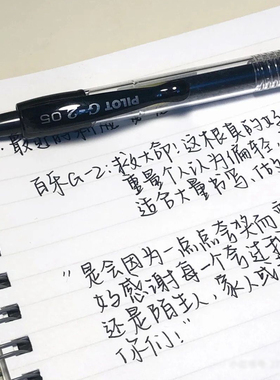 PILOT G-2 05
百乐G-2:救大命!这根真的
重量个人认为偏轻
适合大量书写
"是会因为一点点夸奖而
好感谢每一个夸过我
还是陌生人,家人或
你们!"